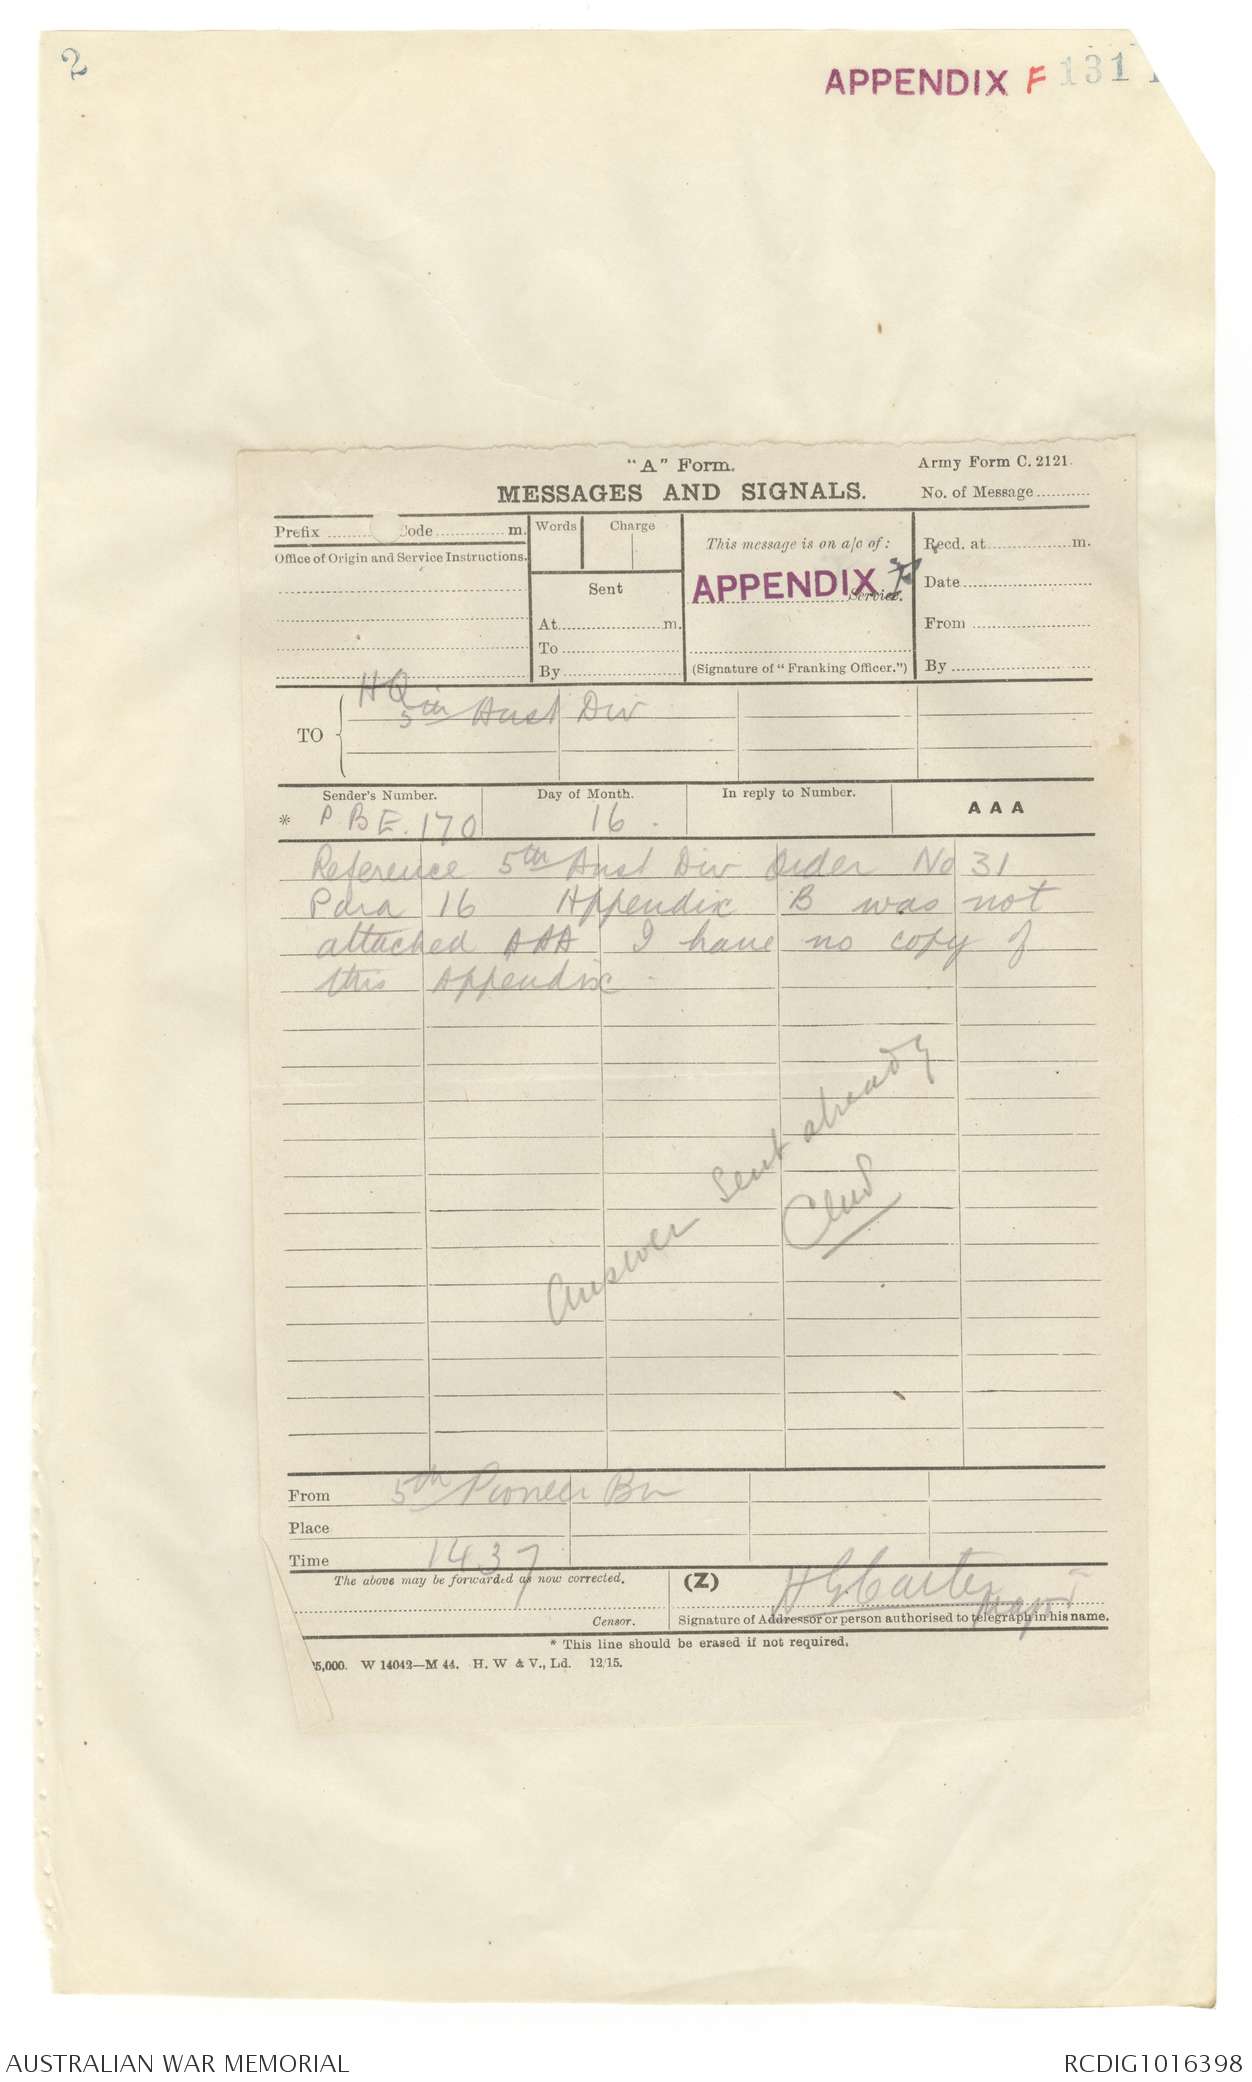 2
APPENDIX F 131
"A" Form.
Army Form C. 2121.
MESSAGES AND SIGNALS.
No. of Message..........
Prefix .......... Code .......... m.
Words
Charge
This message is on a/c of:
Recd. at .......... m.
Office of Origin and Service Instructions.
Sent
APPENDIX F
Service.
Date..........
At.......... m.
From ..........
To ..........
By ..........
(Signature of "Franking Officer.")
By ..........
TO
HQ
5th Aust Div
Sender's Number.
Day of Month.
In reply to Number.
AAA
* PBE.170
16.
Reference 5th Aust Div Order No 31
Para 16 Appendix B was not
attached AAA I have no copy of
this Appendix.
Answer sent already
From 5th Pioneer Bn
Place
Time 1437
The above may be forwarded as now corrected.
(Z)
H G Carter
Major
Censor.
Signature of Addressor or person authorised to telegraph in his name.
* This line should be erased if not required.
5,000. W 14042—M 44. H. W & V., Ld. 12/15.
AUSTRALIAN WAR MEMORIAL
RCDIG1016398